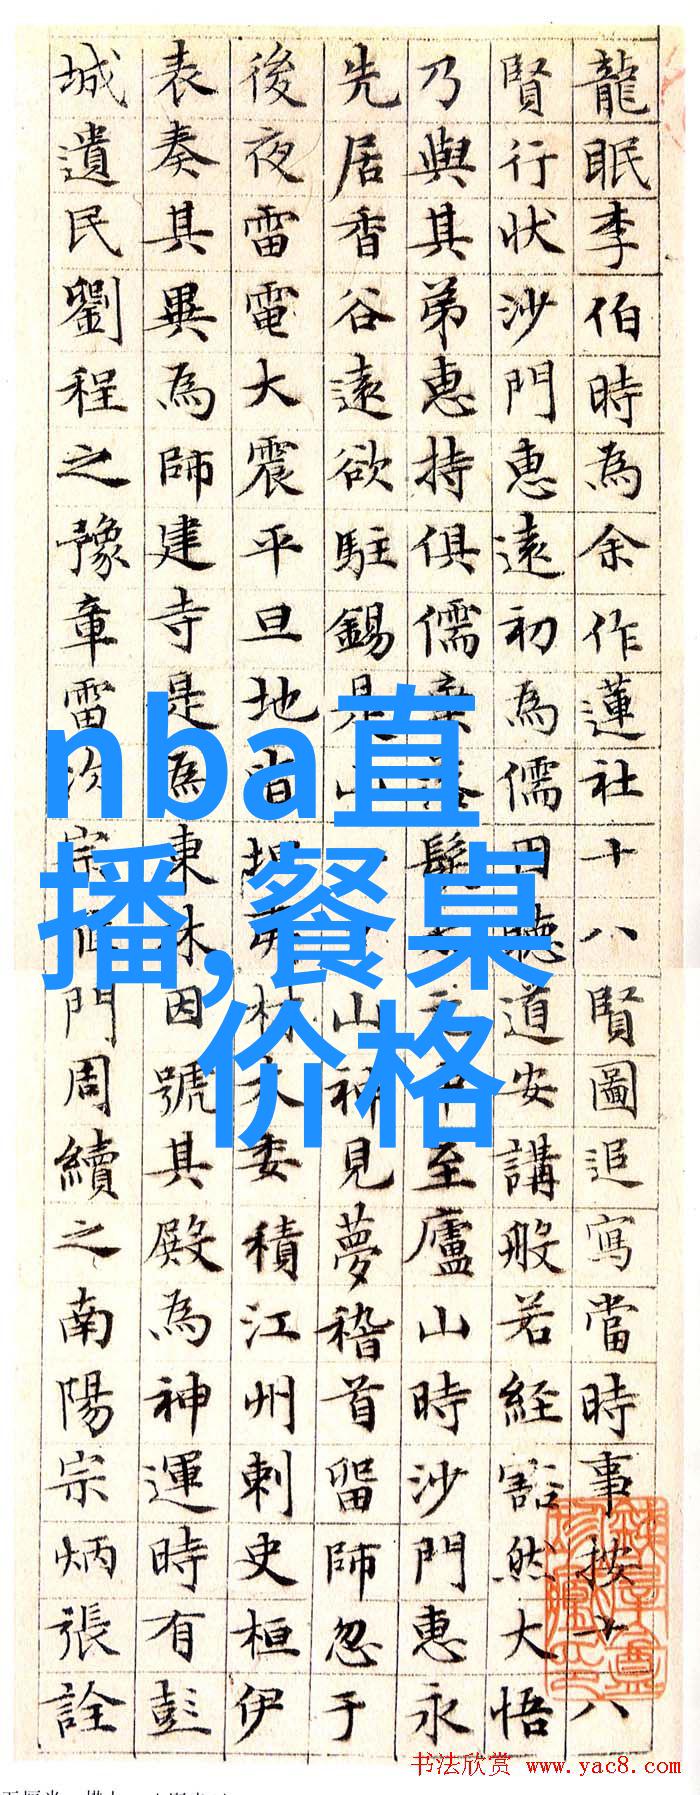 龍眠李伯時為余作蓮社十八賢圖追寫當時事按十八
賢行狀沙門惠遠初為儒因聽道安講般若經豁然大悟
乃與其弟惠持俱儒至廬山時沙門惠永
先居香谷遠欲駐錫是山山神見夢稽首留師忽于
後夜雷電大震平旦地皆林木委積江州刺史桓伊
表奏其異為師建寺是為東林因號其殿為神運時有彭
城遺民劉程之豫章雷次宗門周續之南陽宗炳張詮
nba直
播,餐桌
价格
书法欣赏 www.yac8.com